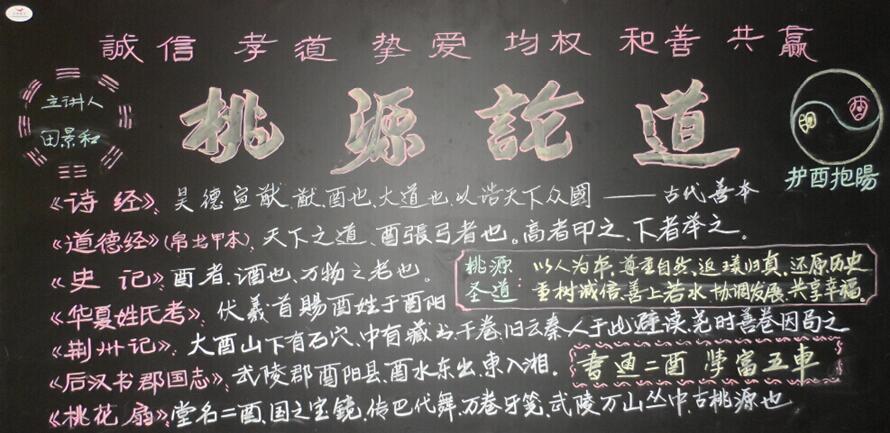 誠信 孝道 挚爱 均权 和善 共赢
主讲人
田景和
桃源论道
护酉抱陽
《诗经》:昊德宣猷,猷,酉也,大道也,以诰天下众國 —— 古代善本
《道德经》(帛书甲本):天下之道、酉張弓者也。高者印之、下者举之。
《史记》:酉者,酒也,万物之老也。
桃源圣道:
以人为本,尊重自然,返璞归真,还原历史
重树诚信,善上若水,协调发展,共享幸福。
《华夏姓氏考》:伏羲首賜酉姓于酉阳
《荆州记》:大酉山下有石穴,中有藏书千卷,旧云秦人于此避读,尧时善卷因局之
《后汉书郡国志》:武陵郡酉阳县,酉水东出,東入湘.
書通二酉 學富五車
《桃花扇》:堂名二酉,国之宝镜,传巴代舞,万卷牙笺,武陵万山丛中,古桃源也